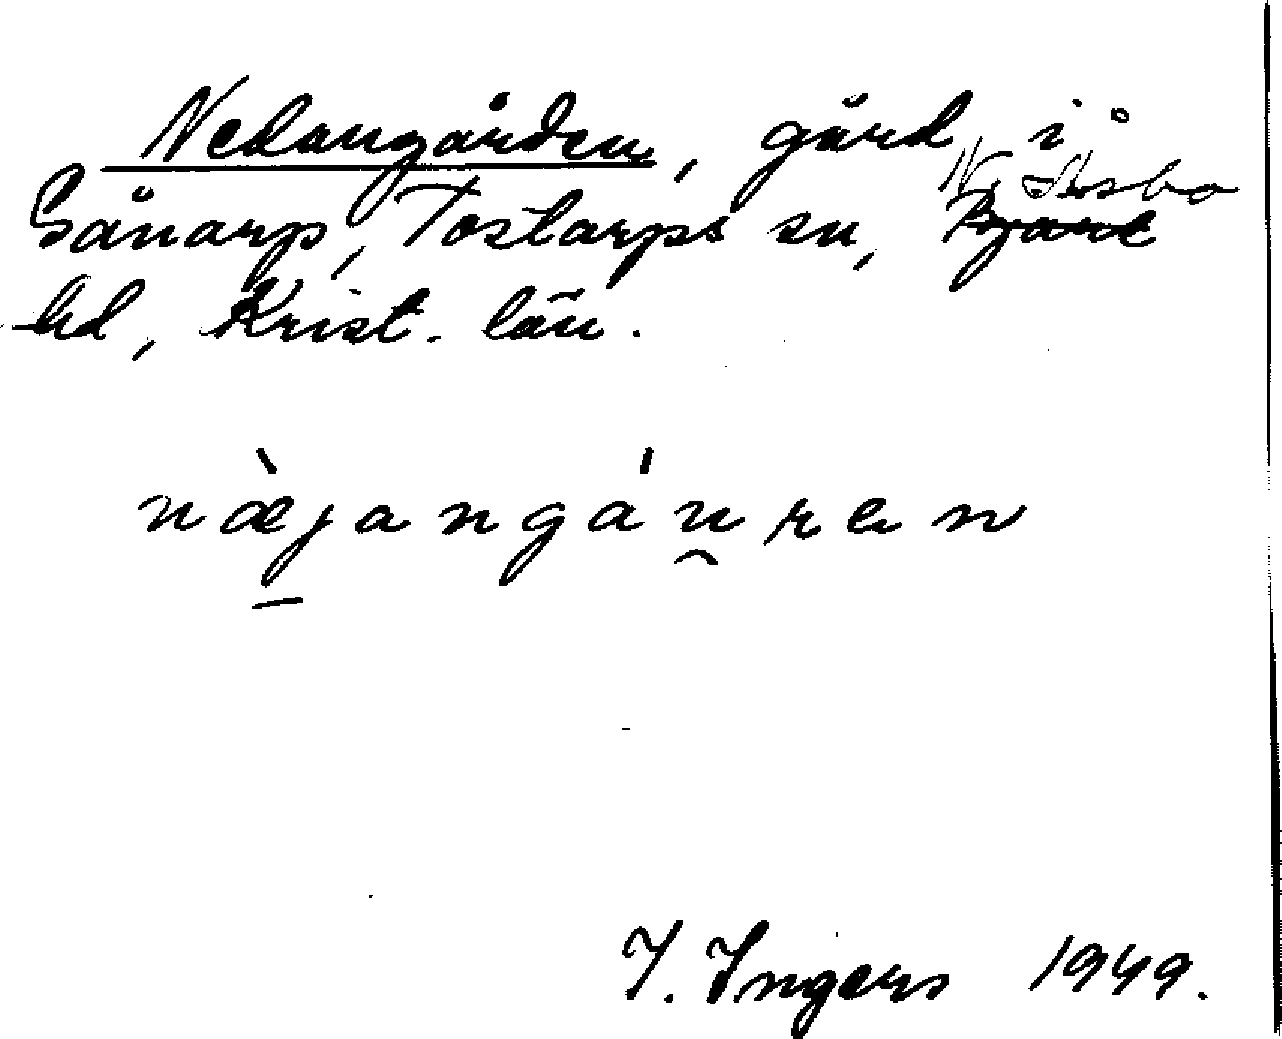 Nedangården, gård i
Gånarp, Tostarps sn, N. Åsbo
hd, Krist. län.
næ̀jangáu̯ren
I. Ingers 1949.